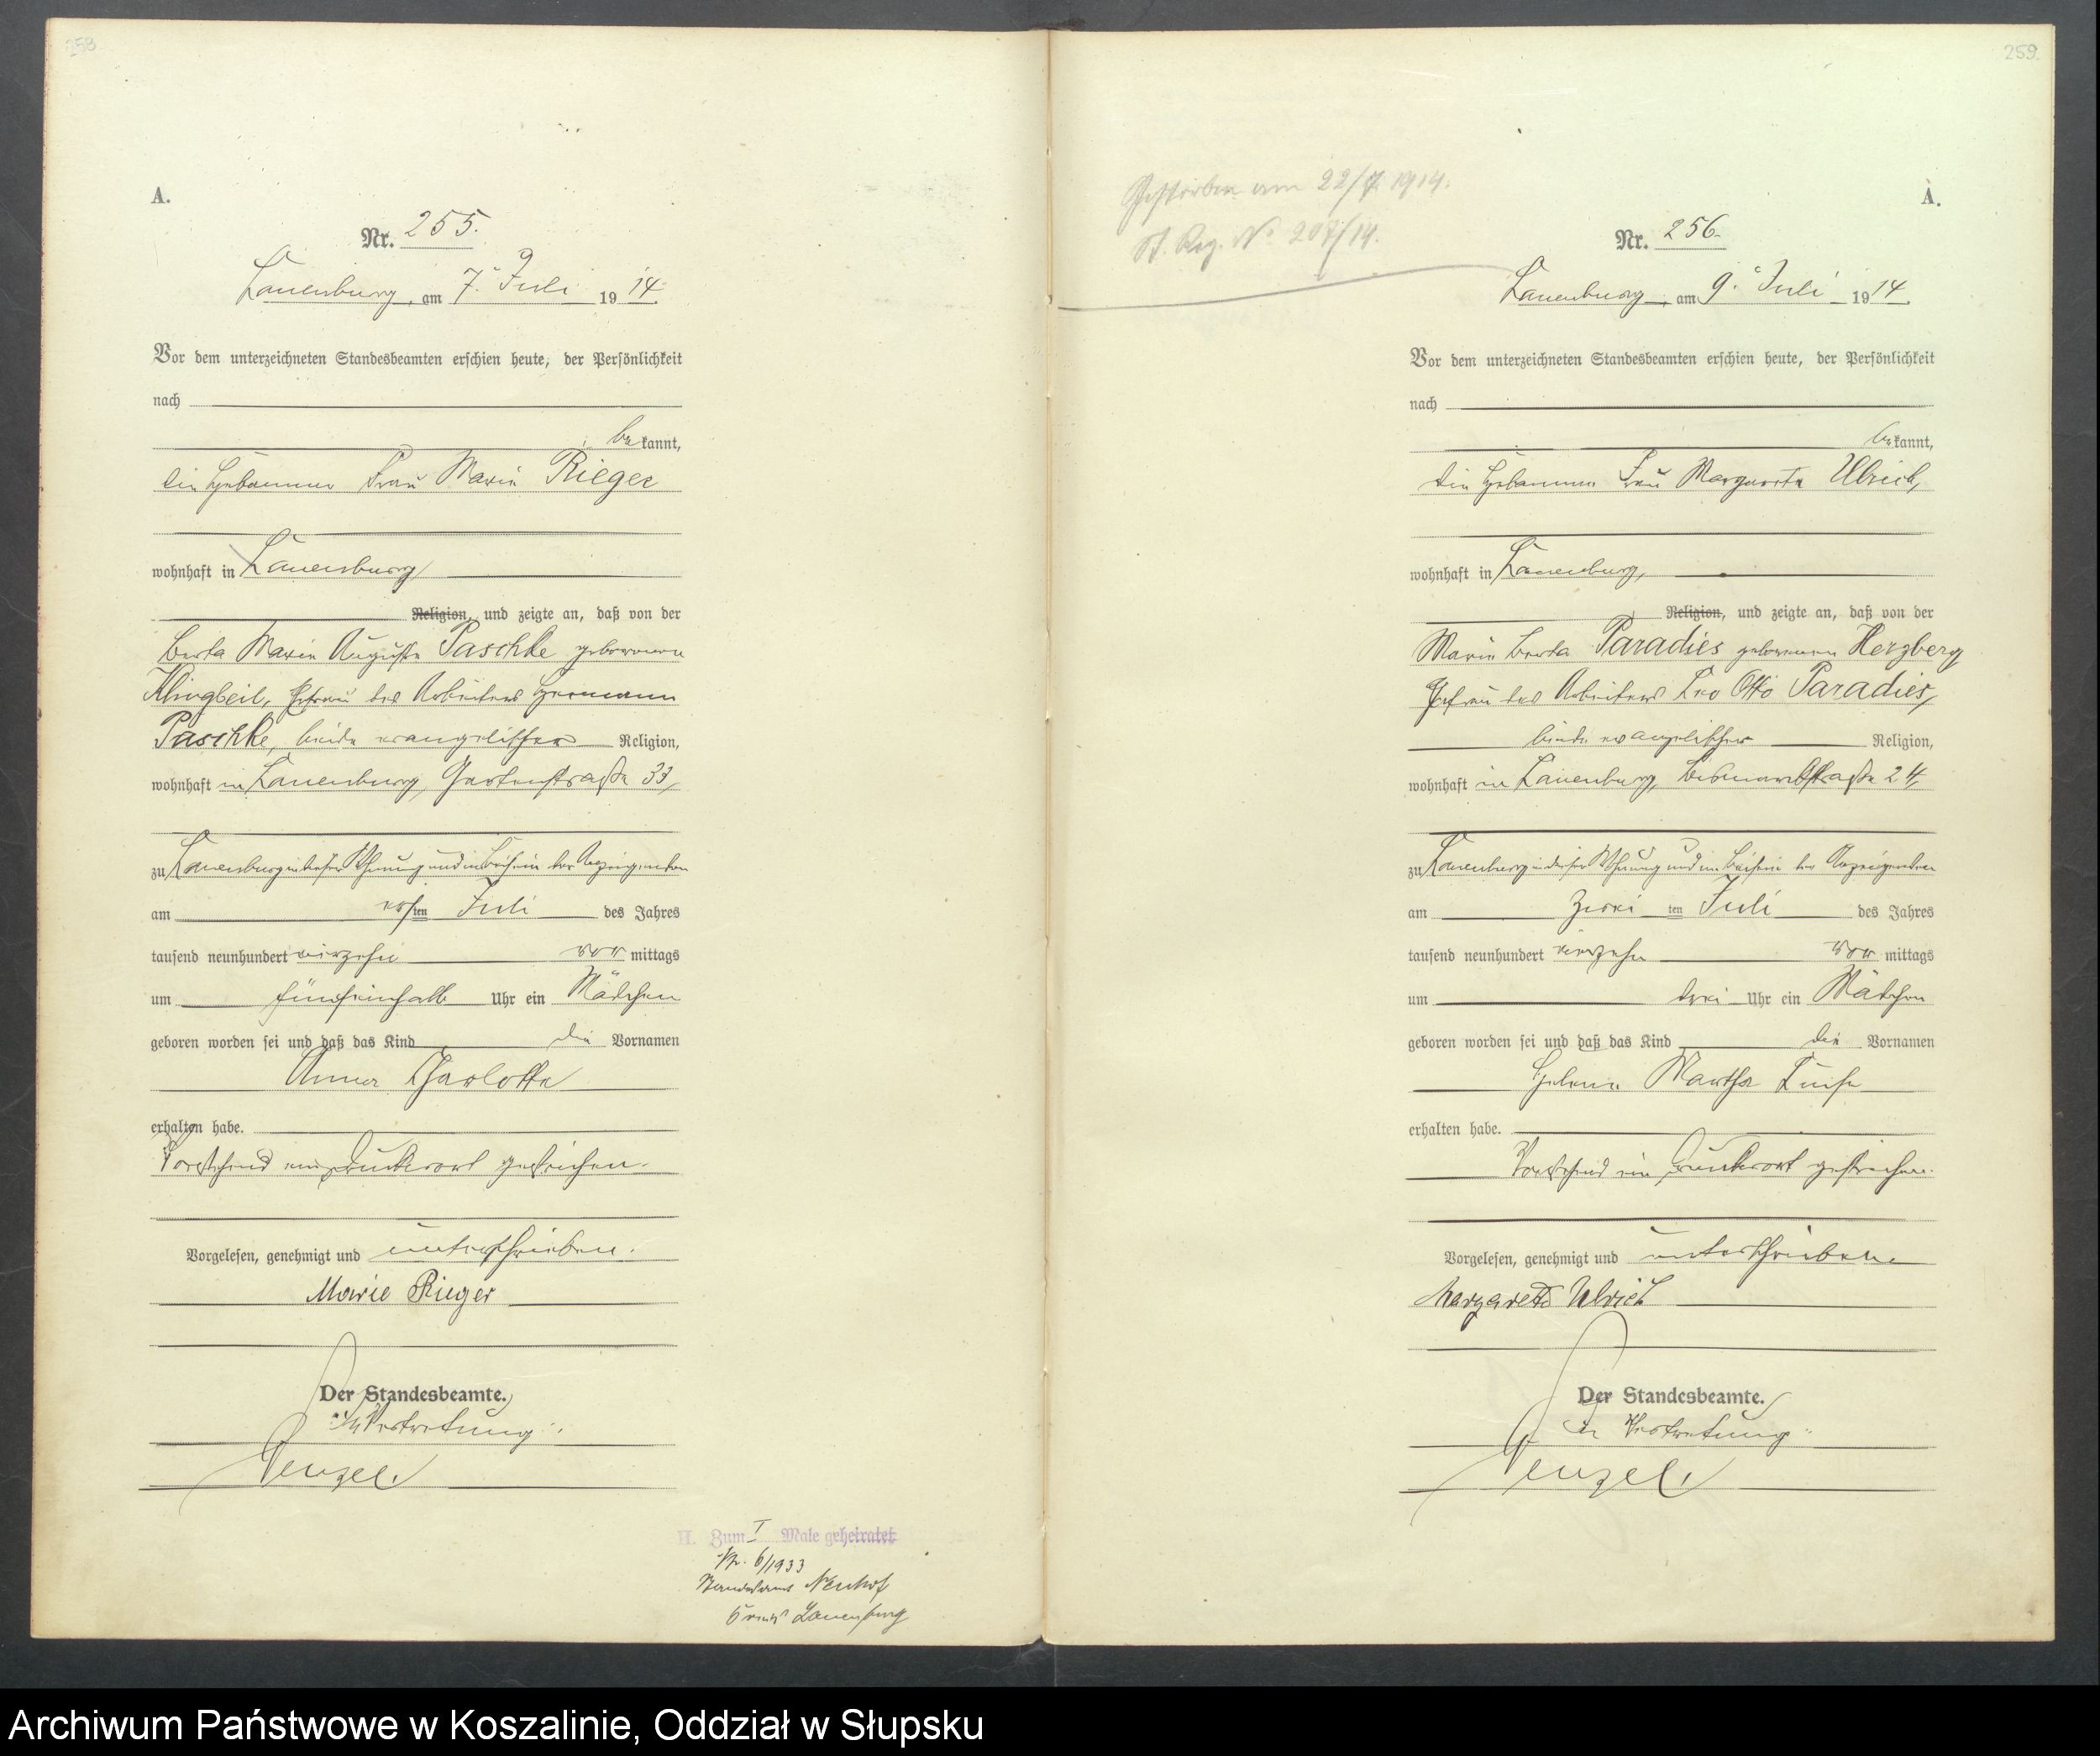 258
A.
Nr. 255.
Lauenburg, am 7. Juli 1914.
Vor dem unterzeichneten Standesbeamten erschien heute, der Persönlichkeit
nach
bekannt,
die Hebamme Frau Marie Rieger
wohnhaft in Lauenburg
Religion, und zeigte an, daß von der
Berta Marie Auguste Paschke geborenen
Klingbeil, Ehefrau des Arbeiters Hermann
Paschke, beide evangelischer Religion,
wohnhaft in Lauenburg, Gartenstraße 33,
zu Lauenburg in dieser Wohnung und im Beisein der Anzeigenden
am ersten Juli des Jahres
tausend neunhundert vierzehn vormittags
um fünfeinhalb Uhr ein Mädchen
geboren worden sei und daß das Kind die Vornamen
Anna Charlotte
erhalten habe.
Vorstehend ein Druckwort gestrichen.
Vorgelesen, genehmigt und unterschrieben.
Marie Rieger
Der Standesbeamte.
In Vertretung:
Wenzel.
II. Zum I Male geheiratet
Nr. 6/1933
Standesamt Neuhof
Kreis Lauenburg
259.
Gestorben am 22/7. 1914.
St. Reg. No 207/14.
A.
Nr. 256.
Lauenburg, am 9. Juli 1914.
Vor dem unterzeichneten Standesbeamten erschien heute, der Persönlichkeit
nach
bekannt,
die Hebamme Frau Margarete Ulrich,
wohnhaft in Lauenburg,
Religion, und zeigte an, daß von der
Marie Berta Paradies geborenen Herzberg
Ehefrau des Arbeiters Leo Otto Paradies,
beide evangelischer Religion,
wohnhaft in Lauenburg, Bismarckstraße 24,
zu Lauenburg in dieser Wohnung und im Beisein der Anzeigenden
am zweiten Juli des Jahres
tausend neunhundert vierzehn vormittags
um drei Uhr ein Mädchen
geboren worden sei und daß das Kind die Vornamen
Helene Martha Luise
erhalten habe.
Vorstehend ein Druckwort gestrichen.
Vorgelesen, genehmigt und unterschrieben
Margarete Ulrich
Der Standesbeamte.
In Vertretung:
Wenzel.
Archiwum Państwowe w Koszalinie, Oddział w Słupsku